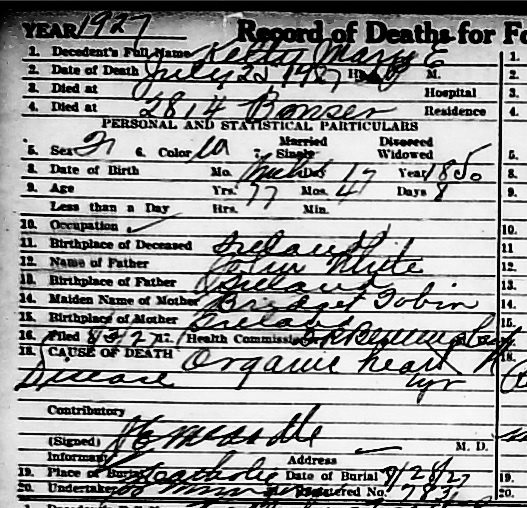 YEAR 1927 Record of Deaths for Fo
1. Decedent's Full Name Kelly Mary E
2. Date of Death July 25 1927 Hr. M.
3. Died at Hospital
4. Died at 2814 Bonser Residence
PERSONAL AND STATISTICAL PARTICULARS
5. Sex F 6. Color W 7. Married Single Divorced Widowed
8. Date of Birth Mo. Day 17 Year 1850
9. Age Yrs. 77 Mos. 4 Days 8
Less than a Day Hrs. Min.
10. Occupation ✓
11. Birthplace of Deceased Ireland
12. Name of Father John White
13. Birthplace of Father Ireland
14. Maiden Name of Mother Bridget Tobin
15. Birthplace of Mother Ireland
16. Filed 8/3/27 17. Health Commissioner
18. CAUSE OF DEATH Organic heart
Disease 1 yr
Contributory
(Signed) M. D.
Informant Address
19. Place of Burial Catholic Date of Burial 7/28/27
20. Undertaker Registered No. 783